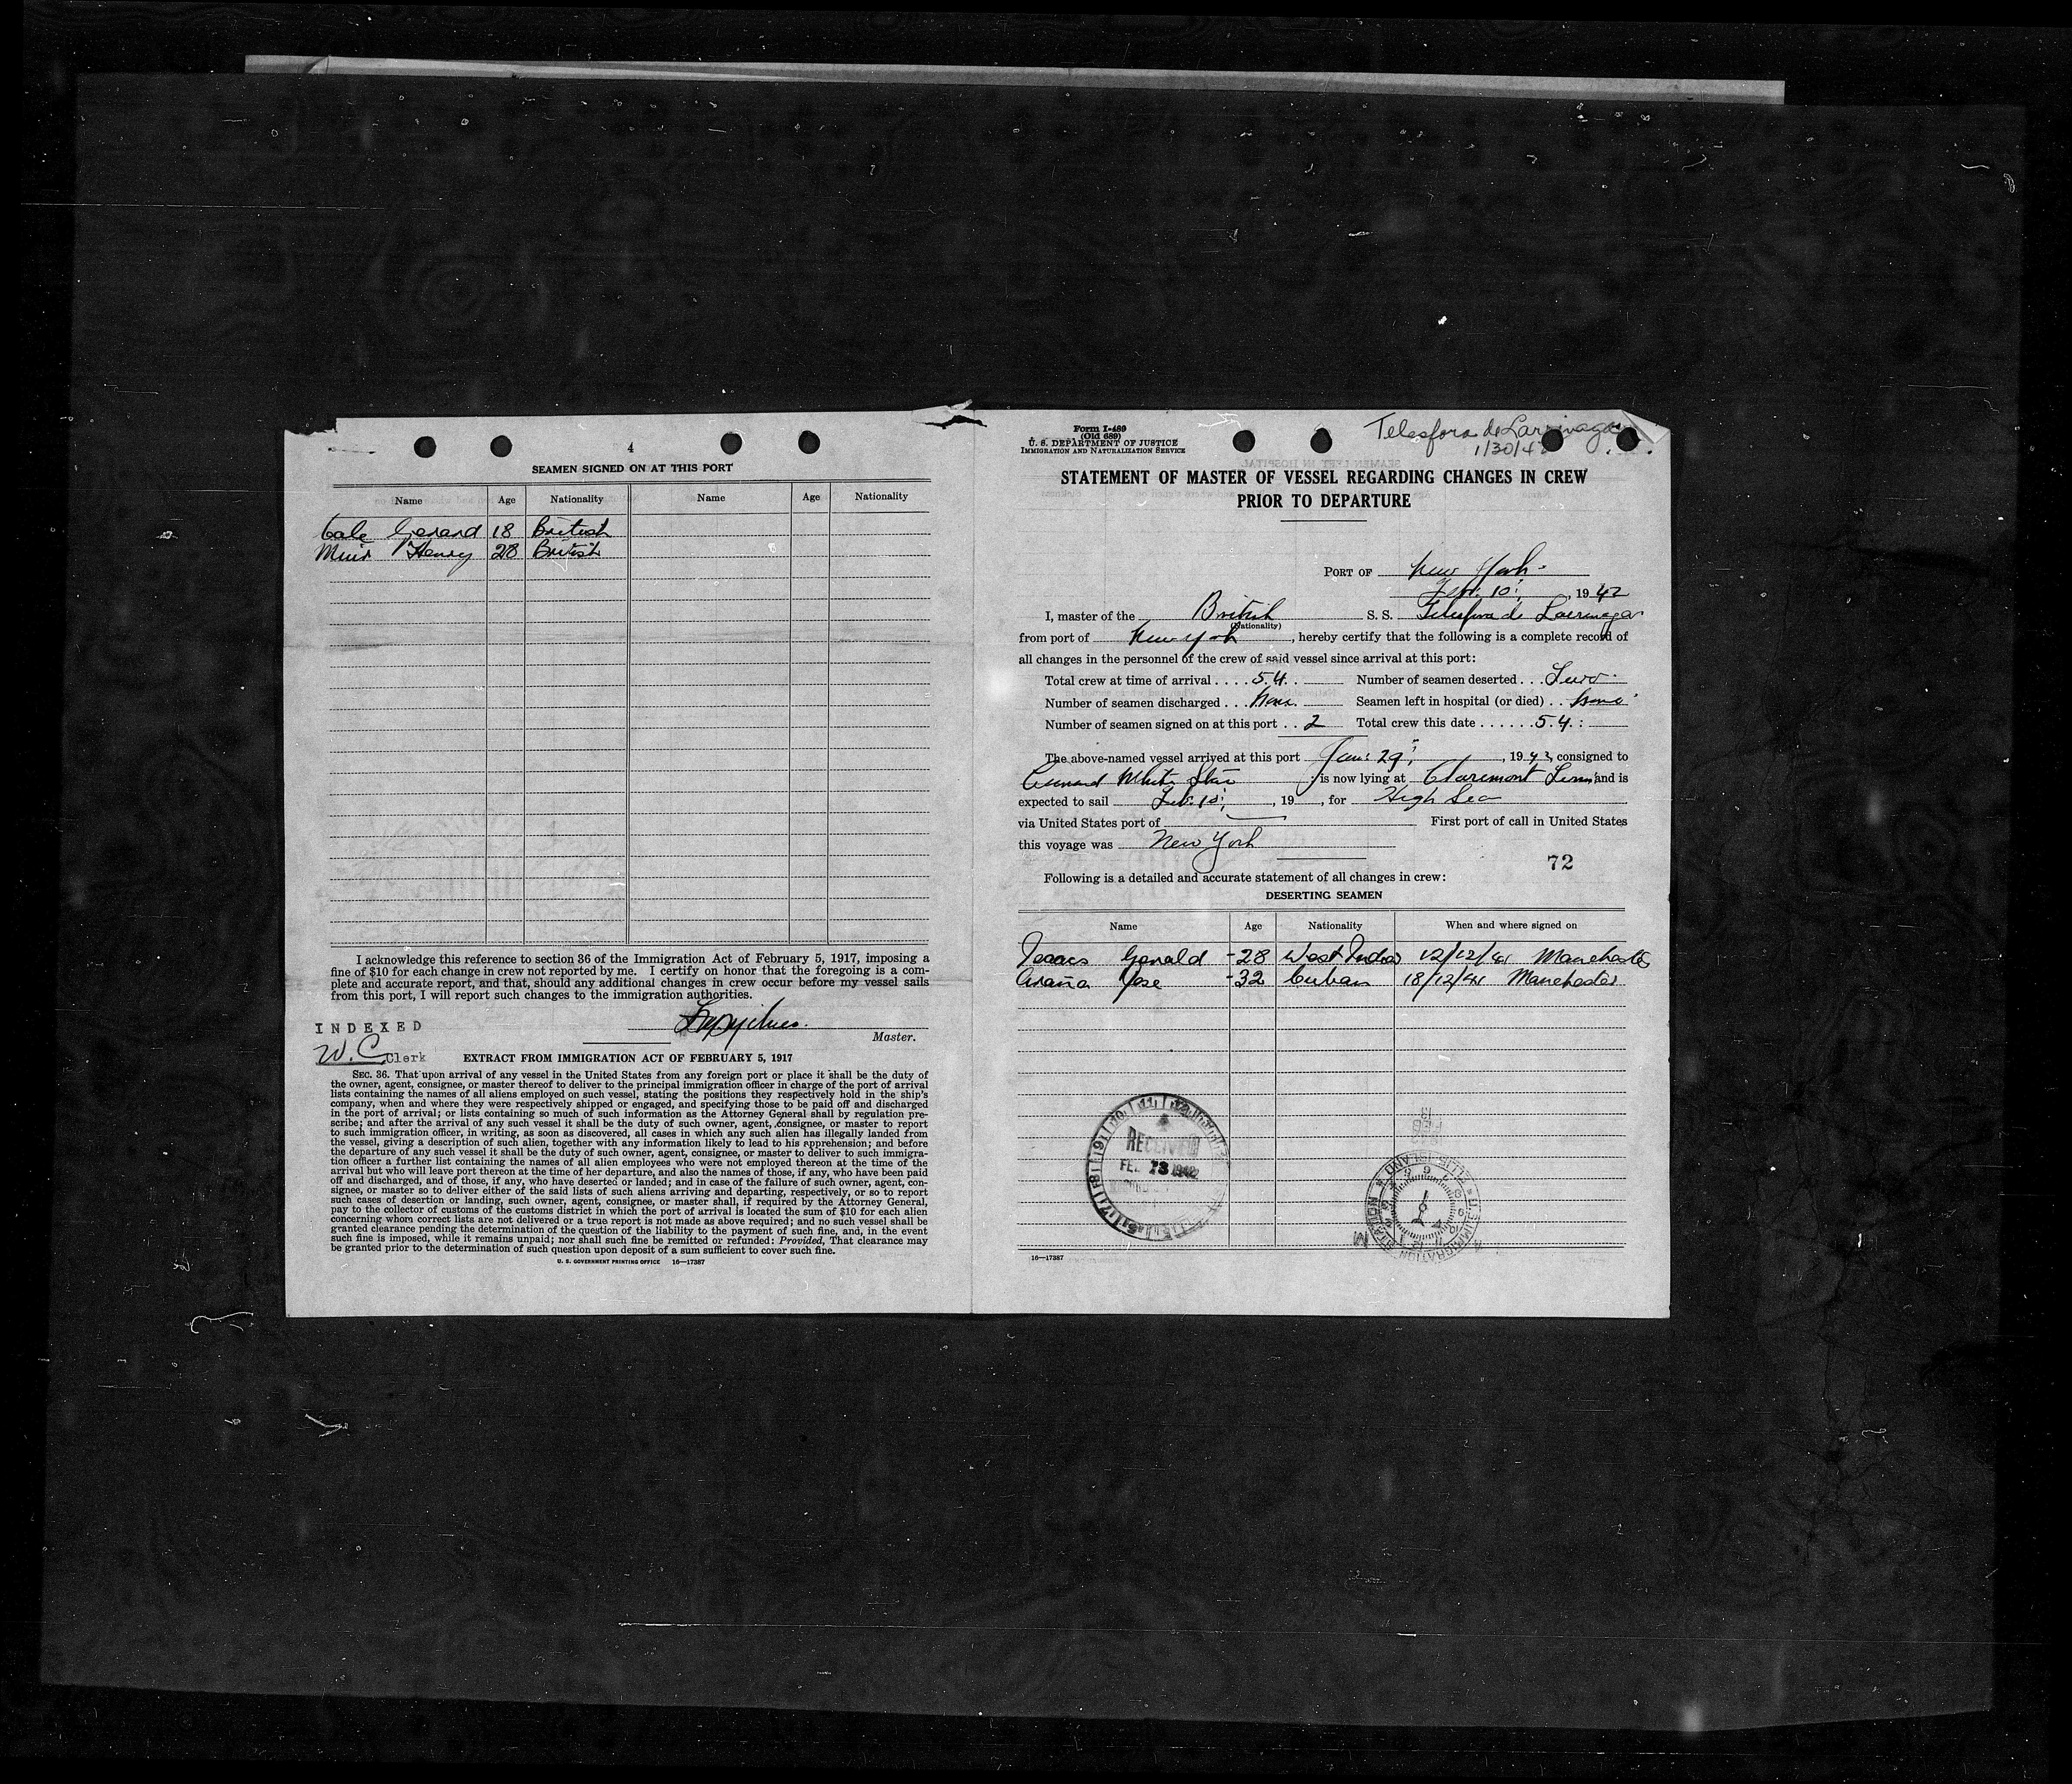 4
SEAMEN SIGNED ON AT THIS PORT
Name Age Nationality Name Age Nationality
Gale Gerard 18 British
Muir Henry 28 British
I acknowledge this reference to section 36 of the Immigration Act of February 5, 1917, imposing a
fine of $10 for each change in crew not reported by me. I certify on honor that the foregoing is a com-
plete and accurate report, and that, should any additional changes in crew occur before my vessel sails
from this port, I will report such changes to the immigration authorities.
Master.
INDEXED
W. C. Clerk
EXTRACT FROM IMMIGRATION ACT OF FEBRUARY 5, 1917
SEC. 36. That upon arrival of any vessel in the United States from any foreign port or place it shall be the duty of
the owner, agent, consignee, or master thereof to deliver to the principal immigration officer in charge of the port of arrival
lists containing the names of all aliens employed on such vessel, stating the positions they respectively hold in the ship's
company, when and where they were respectively shipped or engaged, and specifying those to be paid off and discharged
in the port of arrival; or lists containing so much of such information as the Attorney General shall by regulation pre-
scribe; and after the arrival of any such vessel it shall be the duty of such owner, agent, consignee, or master to report
to such immigration officer, in writing, as soon as discovered, all cases in which any such alien has illegally landed from
the vessel, giving a description of such alien, together with any information likely to lead to his apprehension; and before
the departure of any such vessel it shall be the duty of such owner, agent, consignee, or master to deliver to such immigra-
tion officer a further list containing the names of all alien employees who were not employed thereon at the time of the
arrival but who will leave port thereon at the time of her departure, and also the names of those, if any, who have been paid
off and discharged, and of those, if any, who have deserted or landed; and in case of the failure of such owner, agent, con-
signee, or master so to deliver either of the said lists of such aliens arriving and departing, respectively, or so to report
such cases of desertion or landing, such owner, agent, consignee, or master shall, if required by the Attorney General,
pay to the collector of customs of the customs district in which the port of arrival is located the sum of $10 for each alien
concerning whom correct lists are not delivered or a true report is not made as above required; and no such vessel shall be
granted clearance pending the determination of the question of the liability to the payment of such fine, and, in the event
such fine is imposed, while it remains unpaid; nor shall such fine be remitted or refunded: Provided, That clearance may
be granted prior to the determination of such question upon deposit of a sum sufficient to cover such fine.
U. S. GOVERNMENT PRINTING OFFICE 16—17387
Form I-489
(Old 689)
U. S. DEPARTMENT OF JUSTICE
IMMIGRATION AND NATURALIZATION SERVICE
Telesfora de Larrinaga
1/30/42
STATEMENT OF MASTER OF VESSEL REGARDING CHANGES IN CREW
PRIOR TO DEPARTURE
PORT OF New York
Feb. 10, 1942
I, master of the British S. S. Telesfora de Larrinaga
(Nationality)
from port of New York, hereby certify that the following is a complete record of
all changes in the personnel of the crew of said vessel since arrival at this port:
Total crew at time of arrival .... 54. Number of seamen deserted ... Two
Number of seamen discharged ... None. Seamen left in hospital (or died) .. None
Number of seamen signed on at this port .. 2 Total crew this date ...... 54.
The above-named vessel arrived at this port Jan. 29, 1942, consigned to
Cunard White Star is now lying at Claremont Term and is
expected to sail Feb. 10, 19 , for High Sea
via United States port of First port of call in United States
this voyage was New York
72
Following is a detailed and accurate statement of all changes in crew:
DESERTING SEAMEN
Name Age Nationality When and where signed on
Isaacs Gerald -28 West Indies 12/12/41 Manchester
Araña Jose -32 Cuban 18/12/41 Manchester
RECEIVED
FEB 13 1942
U.S. IMMIGRATION STATION
ELLIS ISLAND
16—17387